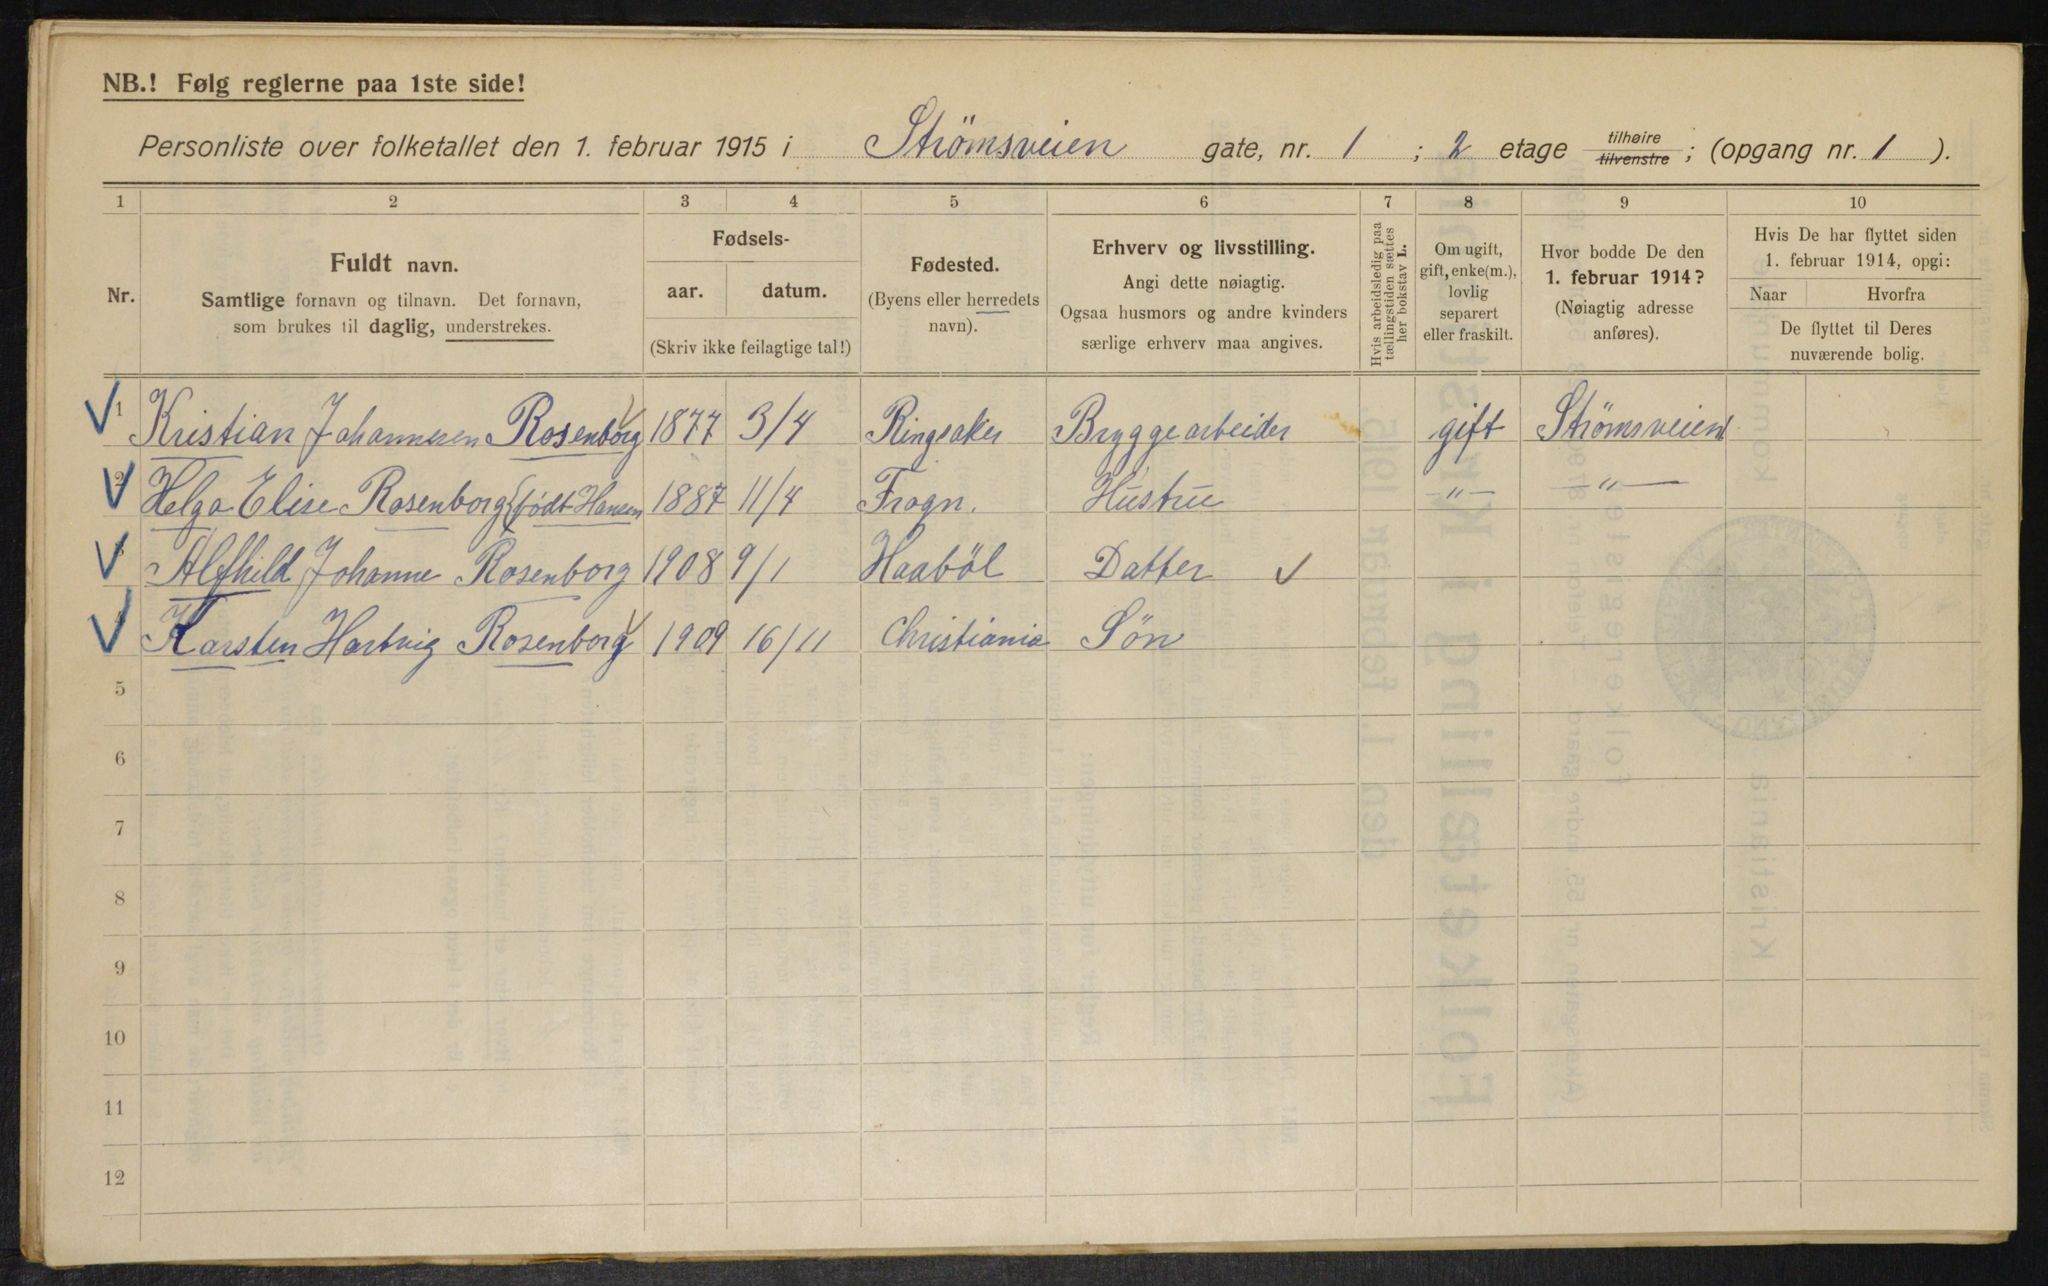 NB.! Følg reglerne paa 1ste side!
Personliste over folketallet den 1. februar 1915 i Strømsveien gate, nr. 1 ; 2 etage tilhøire tilvenstre ; (opgang nr. 1 ).
1 2 3 4 5 6 7 8 9 10
Nr.
Fuldt navn.
Samtlige fornavn og tilnavn. Det fornavn,
som brukes til daglig, understrekes.
Fødsels-
aar. datum.
(Skriv ikke feilagtige tal!)
Fødested.
(Byens eller herredets
navn).
Erhverv og livsstilling.
Angi dette nøiagtig.
Ogsaa husmors og andre kvinders
særlige erhverv maa angives.
Hvis arbeidsledig paa
tællingstiden sættes
her bokstav L.
Om ugift,
gift, enke(m.),
lovlig
separert
eller fraskilt.
Hvor bodde De den
1. februar 1914?
(Nøiagtig adresse
anføres).
Hvis De har flyttet siden
1. februar 1914, opgi:
Naar Hvorfra
De flyttet til Deres
nuværende bolig.
1 Kristian Johannesen Rosenborg 1877 3/4 Ringsaker Bryggearbeider gift Strømsveien 1
2 Helga Elise Rosenborg (født Hansen 1887 11/4 Frogn. Hustru -"- -"-
3 Alfhild Johanne Rosenborg 1908 9/1 Haaböl Datter
4 Karsten Hartvig Rosenborg 1909 16/11 Christiania Sön
5
6
7
8
9
10
11
12